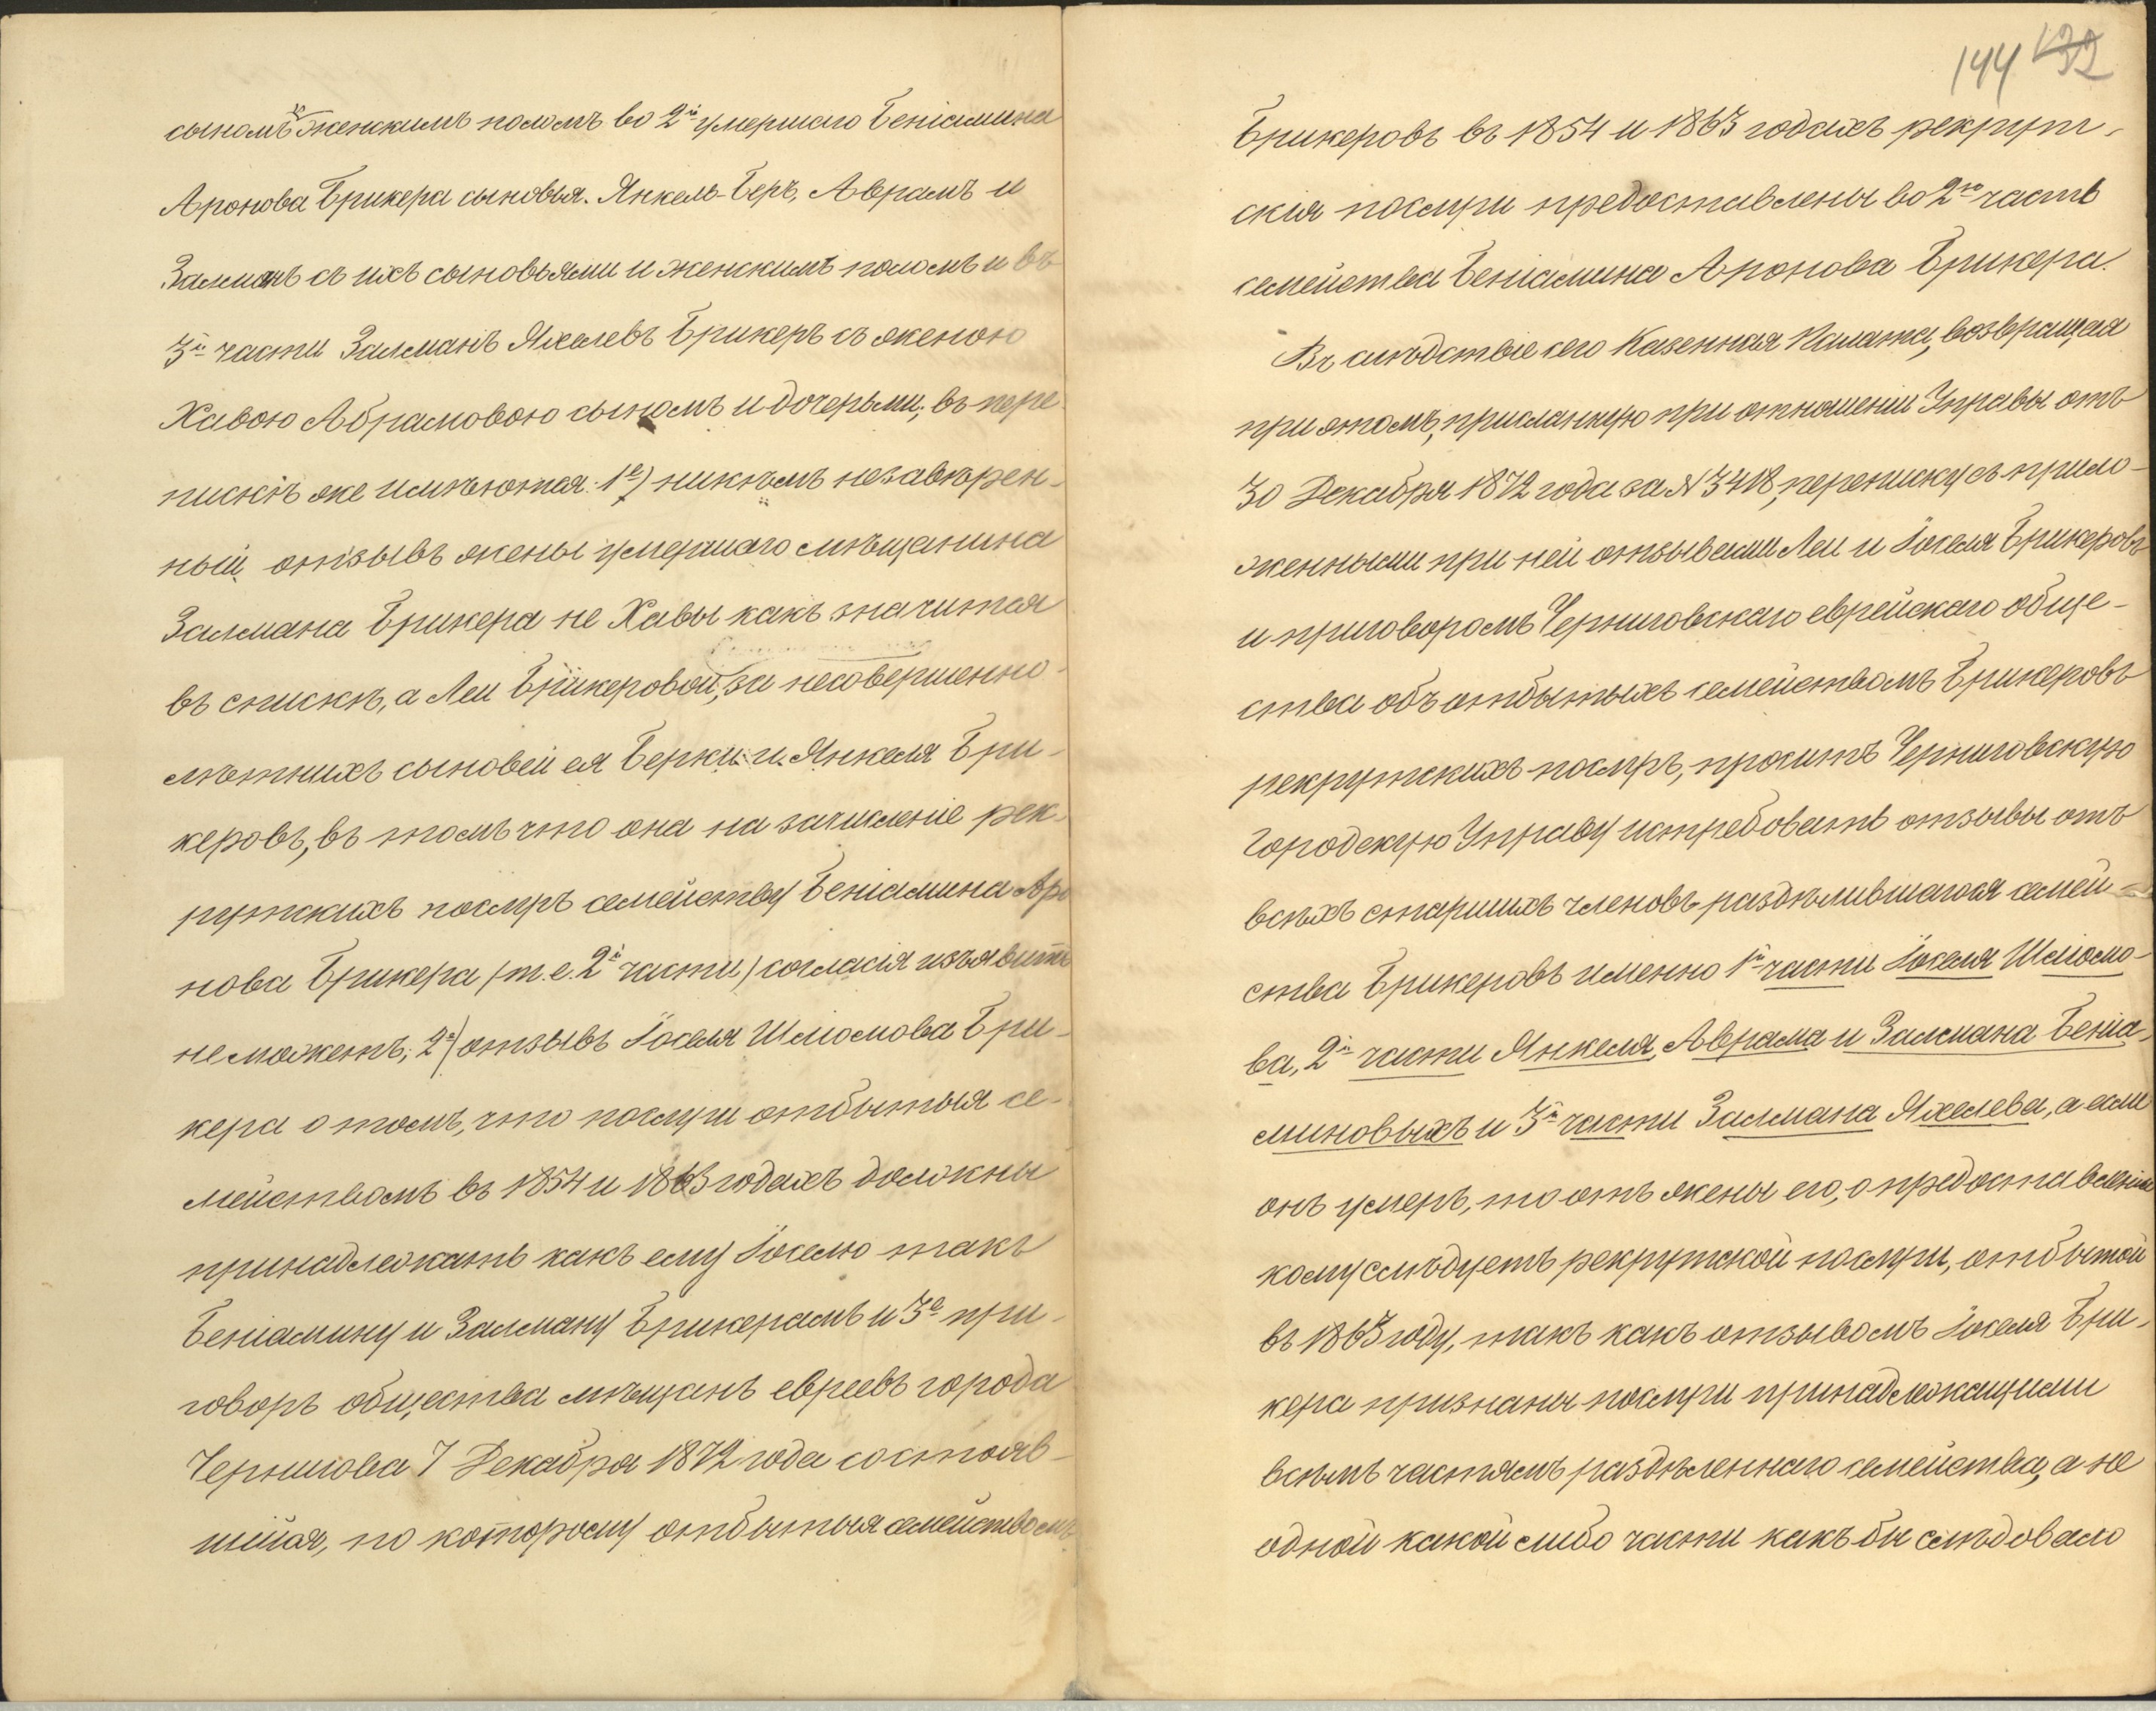 сыномъ и женскимъ поломъ во 2й умершаго Беніамина
Аронова Брикера сыновья. Янкель-Беръ, Аврамъ и
Залманъ съ ихъ сыновьями и женскимъ поломъ и въ
3й части Залманъ Яхелевъ Брикеръ съ женою
Хавою Абрамовою сыномъ и дочерьми; въ пере
пискѣ же имѣются: 1е) никѣмъ незавѣрен-
ный отзывъ жены умершаго мѣщанина
Залмана Брикера не Хавы какъ значится
въ спискѣ, а Леи Брикеровой, за несовершенно-
лѣтнихъ сыновей ея Берки и Янкеля Бри-
керовъ, въ томъ что она на зачисленіе рек-
рутскихъ послугъ семейству Беніамина Аро
нова Брикера /т.е. 2й части/ согласія изъявить
не можетъ; 2е) отзывъ Іоселя Шліомова Бри-
кера о томъ, что послуги отбытыя се-
мействомъ въ 1854 и 1863 годахъ должны
принадлежать какъ ему Іоселю такъ
Беніамину и Залману Брикерамъ и 3е при-
говоръ общества мѣщанъ евреевъ города
Чернигова 7 Декабря 1872 года состояв-
шійся, по которому отбытыя семействомъ
144 132
Брикеровъ въ 1854 и 1863 годахъ рекрут-
скія послуги предоставлены во 2ю часть
семейства Беніамина Аронова Брикера.
Въ слѣдствіе сего Казенная Палата, возвращая
при этомъ, присланную при отношеніи Управы отъ
30 Декабря 1872 года за N 3418, переписку съ прило-
женными при ней отзывами Леи и Іоселя Брикеровъ
и приговоромъ Черниговскаго еврейскаго обще-
ства объ отбытыхъ семействомъ Брикеровъ
рекрутскихъ послугъ, проситъ Черниговскую
Городскую Управу истребовать отзывы отъ
всѣхъ старшихъ членовъ раздѣлившагося семей-
ства Брикеровъ именно 1й части Іоселя Шліомо-
ва, 2й части Янкеля, Аврама и Залмана Беніа-
миновыхъ и 3й части Залмана Яхелева, а если
онъ умеръ, то отъ жены его, о предоставленіи
кому слѣдуетъ рекрутской послуги, отбытой
въ 1863 году, такъ какъ отзывомъ Іоселя Бри-
кера признаны послуги принадлежащими
всѣмъ частямъ раздѣленнаго семейства, а не
одной какой либо части какъ бы слѣдовало